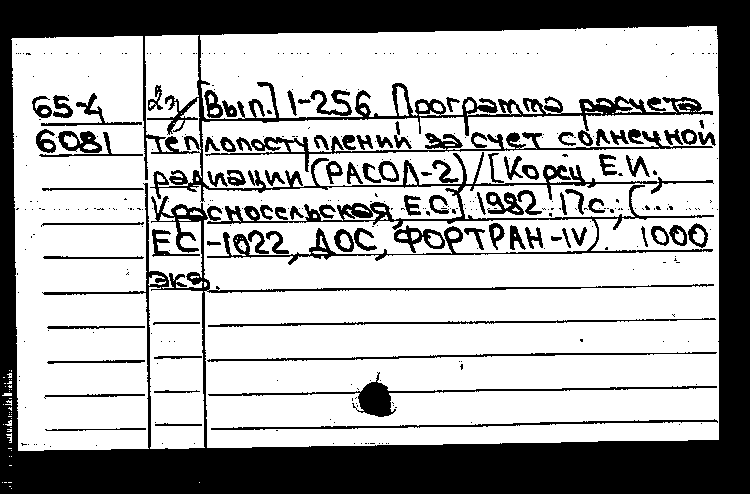 65-4 2э [Вып.] 1-256. Программа расчета
6081 теплопоступлений за счет солнечной
радиации (РАСОЛ-2) / [Корец, Е.И.,
Красносельская, Е.С.]. 1982. 17с.; (...
ЕС-1022, ДОС, ФОРТРАН-IV). 1000
экз.